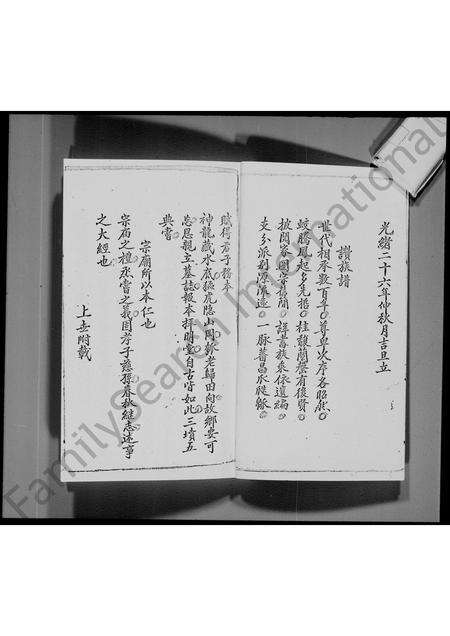 光緒二十六年仲秋月吉旦立
讚族譜
世代相承數百年尊卑次序各昭然
蛟騰鳳起多先哲桂馥蘭馨有後賢
披閱宗圖當長閒詳書族表依遺編
支分派別源流遠一脉蕃昌瓜瓞綿
賦得君子務本
神龍藏水底猛虎隐山閒歡老歸田向故鄉安可
忘恩親立墓誌報本拜明堂自古皆如此三墳五
典書
宗廟所以本仁也
宗廟之禮烝嘗之義因孝子慈孫春秋繼志述事
之大經也
上世附載
FamilySearch International